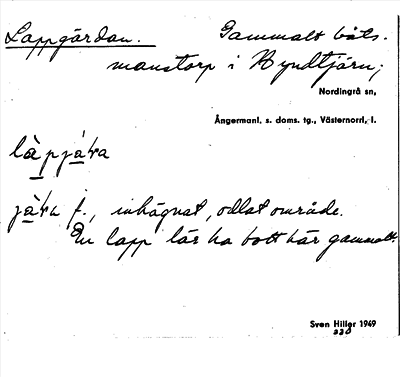 Lappgärdan. Gammalt båts-
manstorp i Ryndtjärn;
Nordingrå sn,
Ångermanl. s. doms. tg., Västernorrl. l.
làpjàra
jàra f., inhägnat, odlat område.
En lapp lär ha bott här gammalt.
Sven Hiller 1949
220